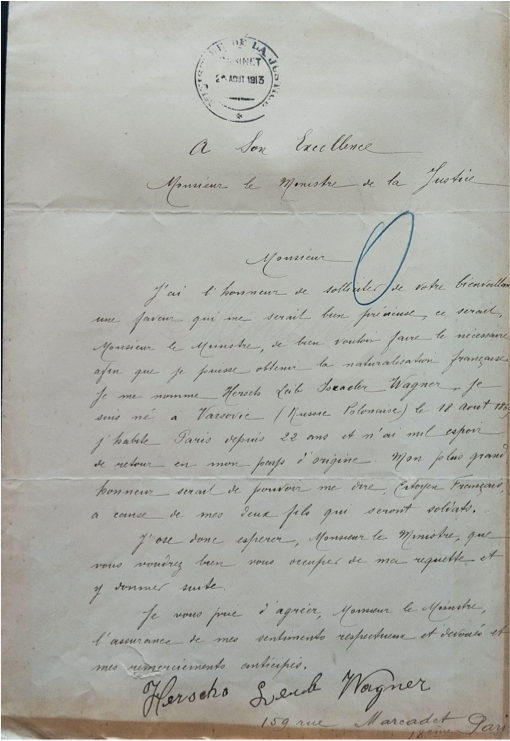 MINISTÈRE DE LA JUSTICE
CABINET
AOUT 1913
A Son Excellence
Monsieur le Ministre de la Justice
Monsieur
J'ai l'honneur de solliciter de votre bienveillan
une faveur qui me serait bien précieuse, ce serait,
Monsieur le Ministre, de bien vouloir faire le nécessaire
afin que je puisse obtenir la naturalisation française
Je me nomme Hersch Leib Wagner. Je
suis né à Varsovie (Russie Polonaise) le 18 Août
j'habite Paris depuis 22 ans et n'ai nul espoir
de retour en mon pays d'origine. Mon plus grand
honneur serait de pouvoir me dire, Citoyen Français,
a cause de mes deux fils qui seront soldats.
J'ose donc espérer, Monsieur le Ministre, que
vous voudrez bien vous occuper de ma requette et
y donner suite.
Je vous prie d'agréer, Monsieur le Ministre,
l'assurance de mes sentiments respectueux et dévoués et
mes remerciements anticipés.
Wagner
159 rue Marcadet Paris